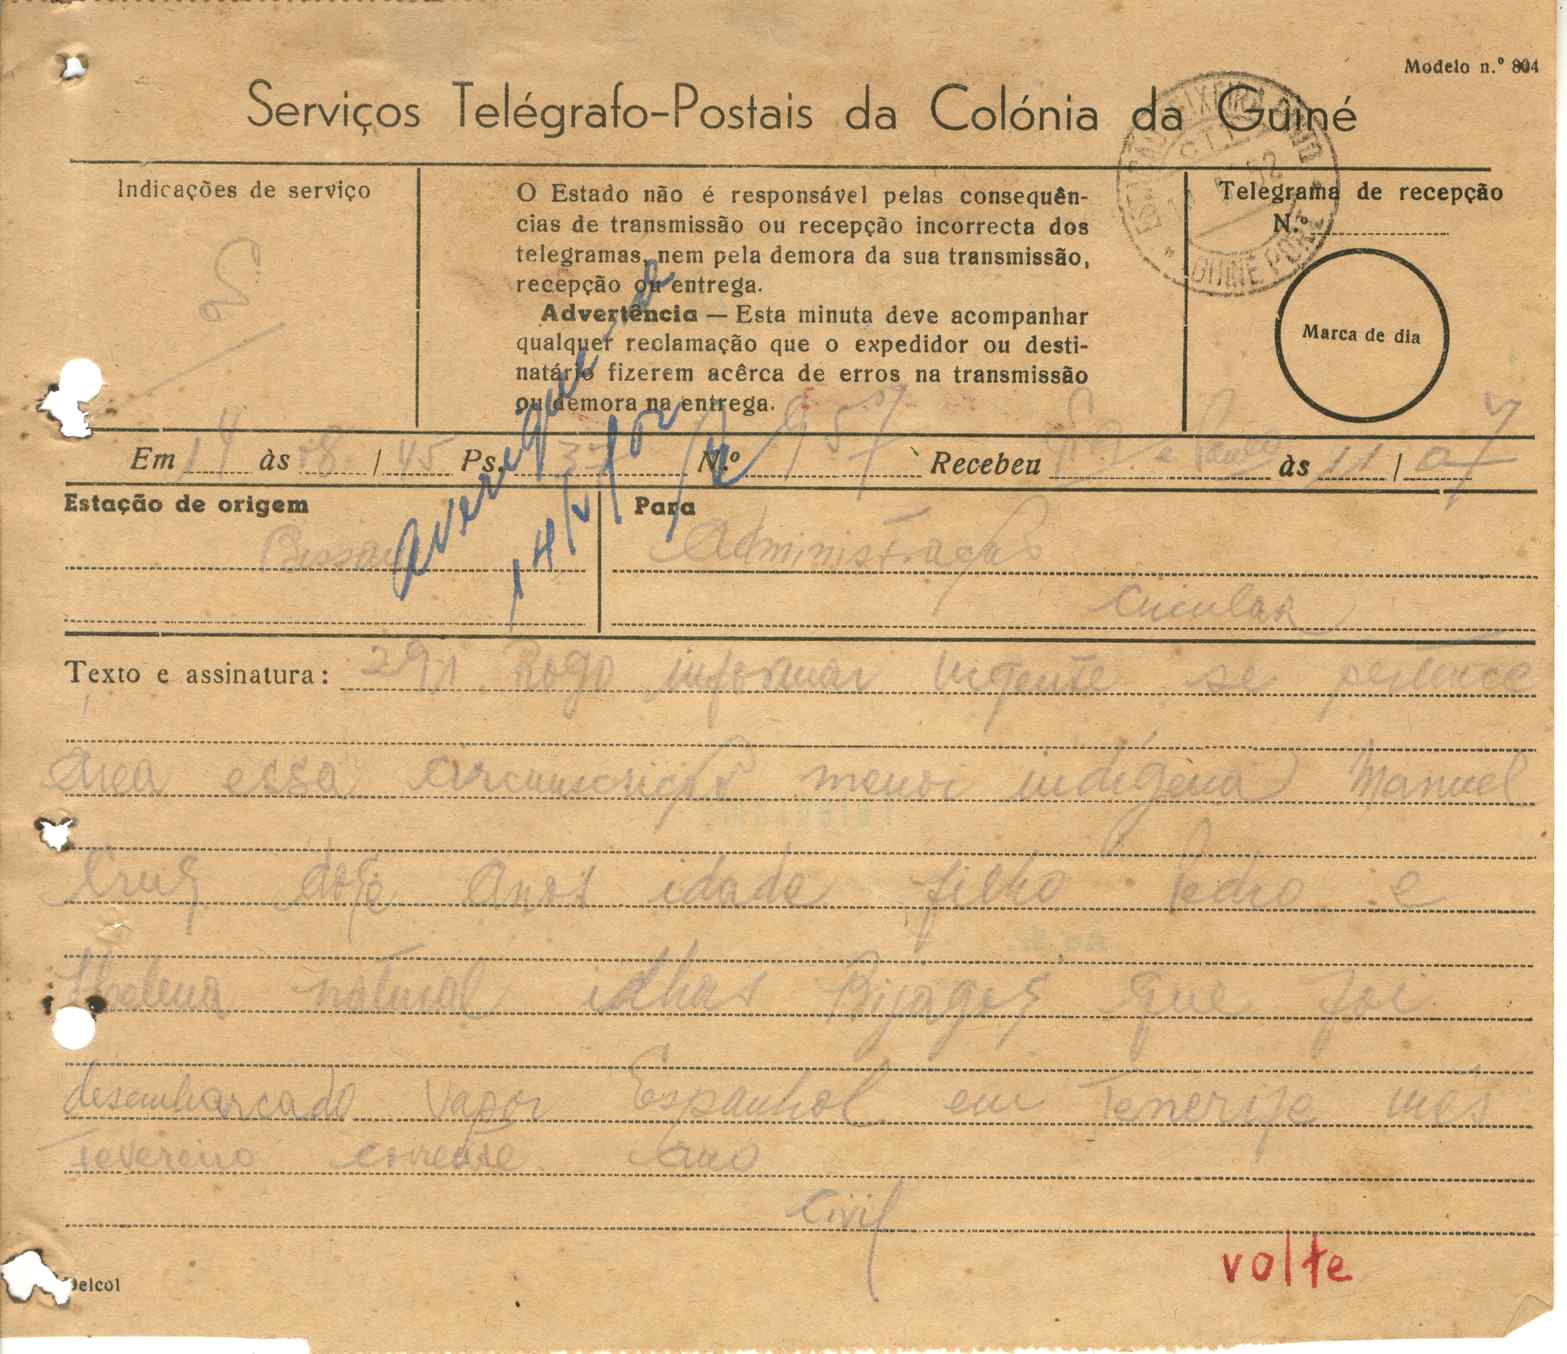 Modelo n.º 804
Serviços Telégrafo-Postais da Colónia da Guiné
Indicações de serviço
O Estado não é responsável pelas consequên-
cias de transmissão ou recepção incorrecta dos
telegramas, nem pela demora da sua transmissão,
recepção ou entrega.
Advertência — Esta minuta deve acompanhar
qualquer reclamação que o expedidor ou desti-
natário fizerem acêrca de erros na transmissão
ou demora na entrega.
Telegrama de recepção
N.º
Marca de dia
Em 14 às 08 / 45 Ps. N.º 957 Recebeu às 11 / 07
Estação de origem
Bissau
Para
Administração
Circular
Averigue-se
14/5/52
Texto e assinatura: 291 Rogo informar urgente se pertence
área essa circunscrição menor indígena Manuel
Cruz doze anos idade filho Pedro e
Helena natural ilhas Bijagoz que foi
desembarcado vapor Espanhol em Tenerife mês
Fevereiro corrente ano
Civil
volte